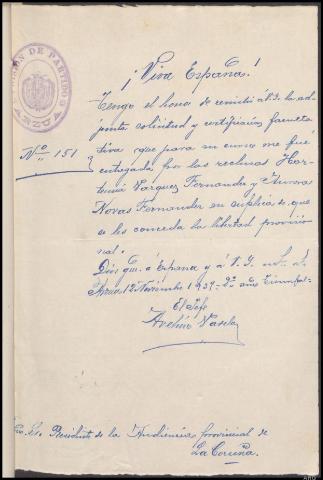 PRISIÓN DE PARTIDO
ARZUA
¡Viva España!
Nº 151
Tengo el honor de remitir a V.S. la ad-
junta solicitud y certificación faculta
tiva que para su curso me fué
entregada por las reclusas Hor-
tensia Vazquez Fernandez y Aurora
Novas Fernandez en súplica de que
se les conceda la libertad provisio
nal.
Dios gue. a España y á V. S. m. a.
Arzua 12 Noviembre 1937 - 2º año Triunfal-
El Jefe
Avelino Varela
Sr. Presidente de la Audiencia provincial de
La Coruña.